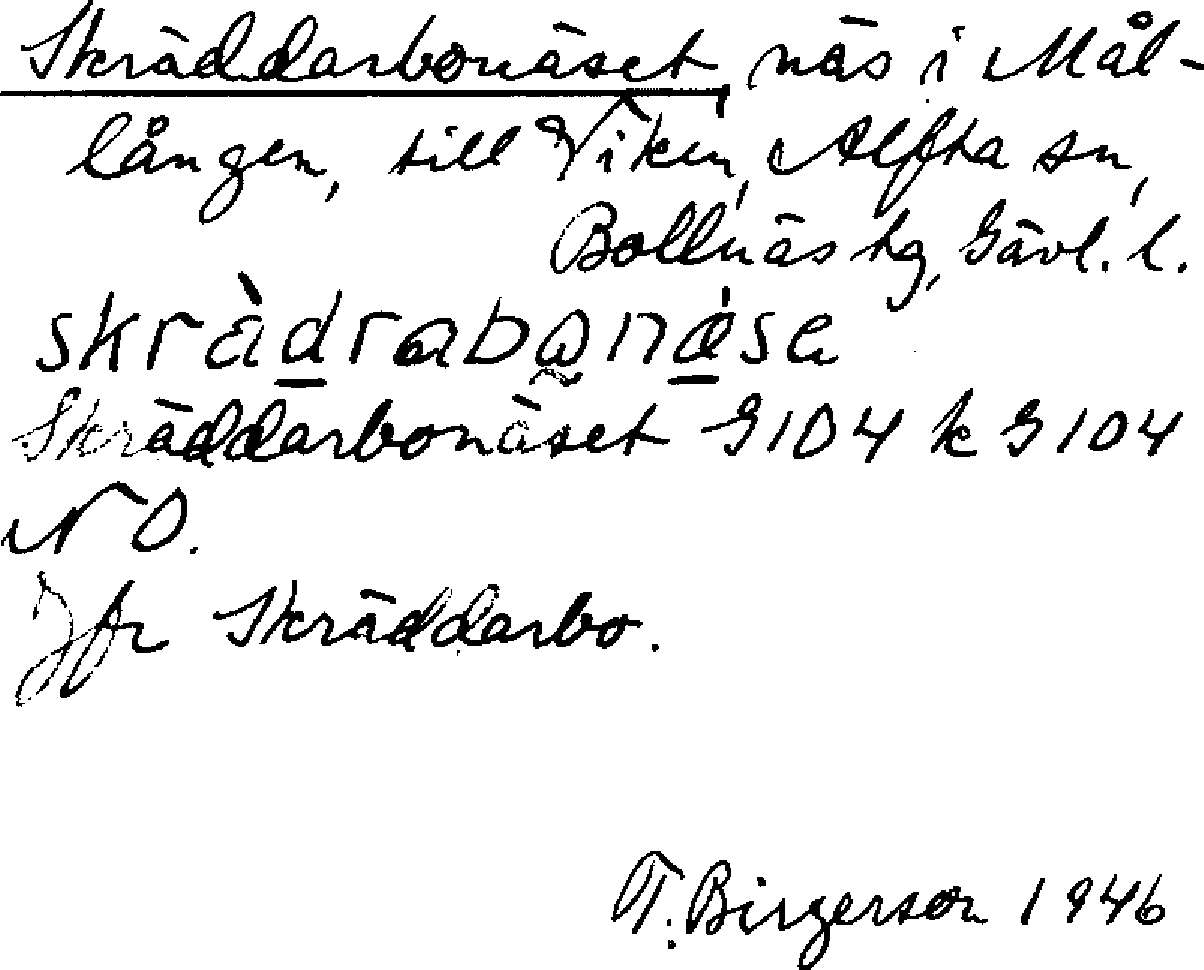 Skräddarbonäset, näs i Mål-
lången, till Viken, Alfta sn,
Bollnäs tg, Gävl. l.
skràdrabonæ̀se
Skräddarbonäset G104 k G104
NO.
Jfr Skräddarbo.
T. Birgerson 1946